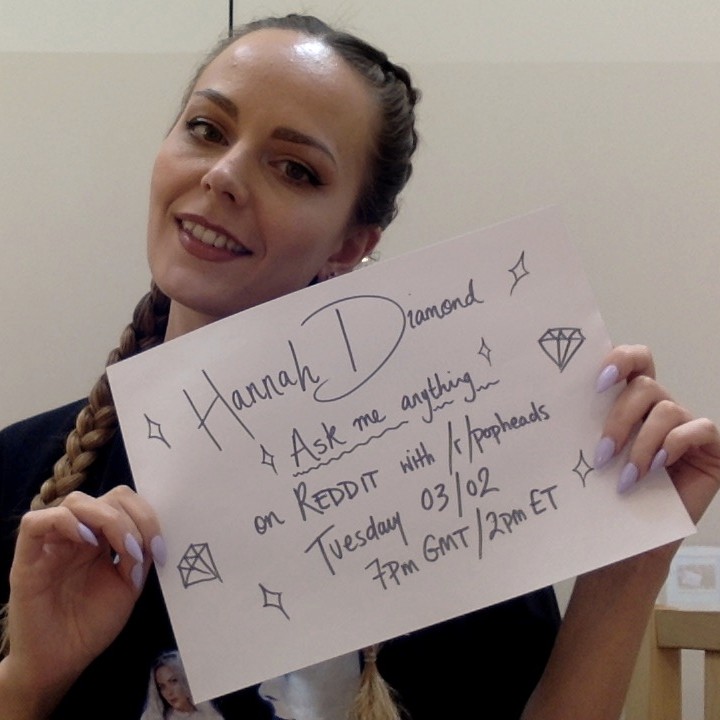 Hannah Diamond
Ask me anything
on REDDIT with /r/popheads
Tuesday 03/02
7pm GMT/2pm ET